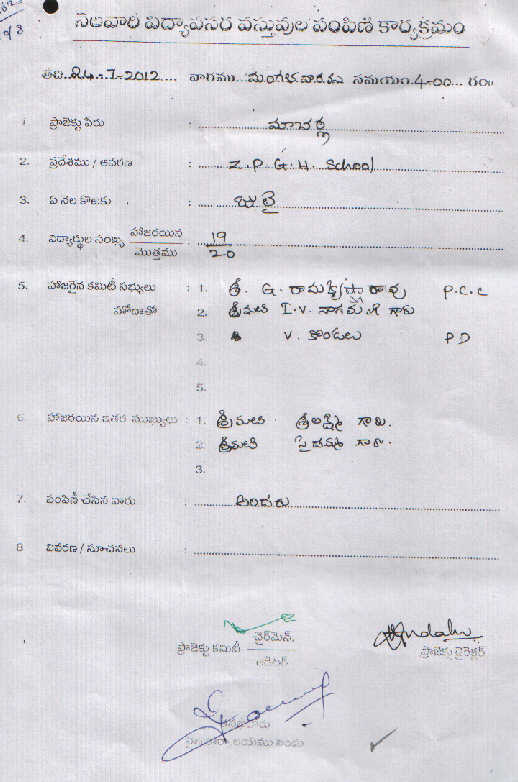 నెలవారి విద్యావసర వస్తువుల పంపిణి కార్యక్రమం
తేది 24-7-2012 వారము మంగళవారము సమయం 4-00 గం॥
1. ప్రాజెక్టు పేరు : మాచర్ల
2. ప్రదేశము / ఆవరణ : Z.P.G.H. School
3. ఏ నెల కొఱకు : జులై
4. విద్యార్థుల సంఖ్య హాజరయిన / మొత్తము : 19 / 20
5. హాజరైన కమిటీ సభ్యులు : 1. శ్రీ. G. రామకృష్ణా రావు P.C.C
హోదాతో 2. శ్రీమతి I.V. గారు
3. V. కొండలు PD
4.
5.
6. హాజరయిన ఇతర ముఖ్యులు : 1. శ్రీమతి శ్రీలక్ష్మి గారు.
2. శ్రీమతి గారు.
3.
7. పంపిణీ చేసిన వారు : అందరు
8. వివరణ / సూచనలు :
ఛైర్మెన్.
ప్రాజెక్టు కమిటీ
ప్రాజెక్టు డైరెక్టర్